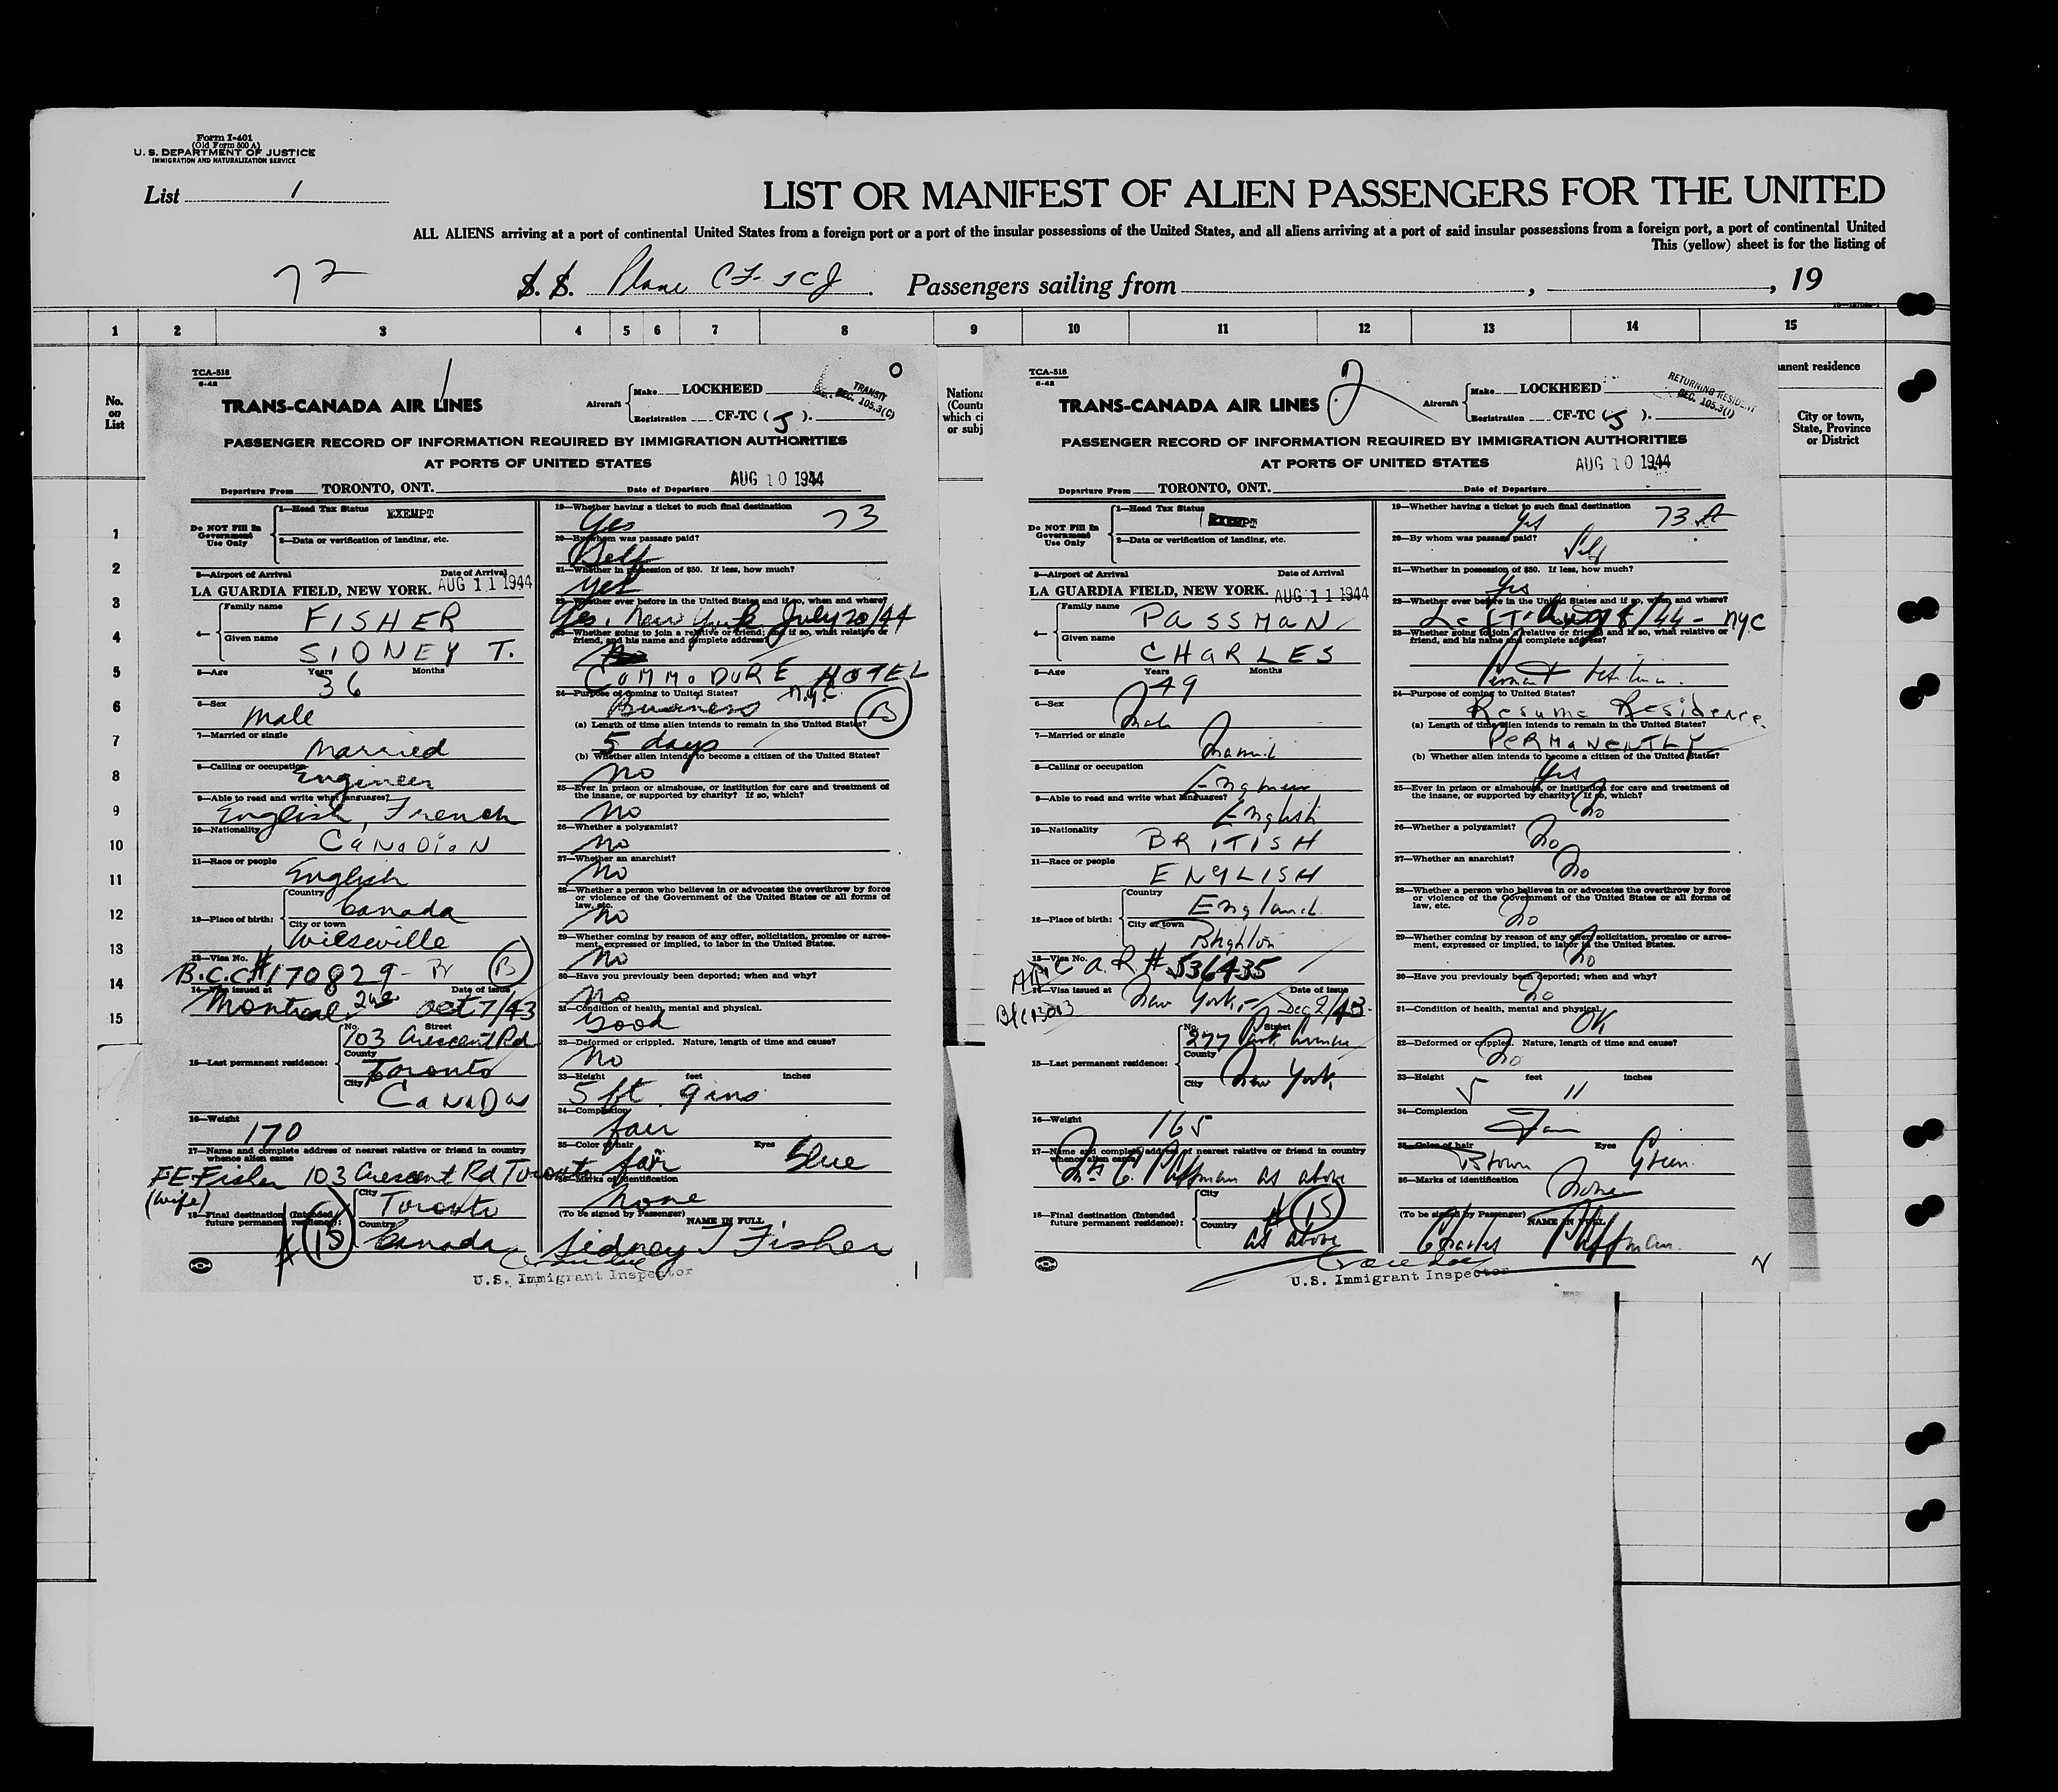 Form I-401
(Old Form 500 A)
U. S. DEPARTMENT OF JUSTICE
IMMIGRATION AND NATURALIZATION SERVICE
List 1
LIST OR MANIFEST OF ALIEN PASSENGERS FOR THE UNITED
ALL ALIENS arriving at a port of continental United States from a foreign port or a port of the insular possessions of the United States, and all aliens arriving at a port of said insular possessions from a foreign port, a port of continental United
This (yellow) sheet is for the listing of
72 S. S. Plane CF-TCJ Passengers sailing from , , 19
1 2 3 4 5 6 7 8 9 10 11 12 13 14 15
No.
on
List
1
2
3
4
5
6
7
8
9
10
11
12
13
14
15
TCA-518
6-42
1
0
TRANS-CANADA AIR LINES
Aircraft
Make LOCKHEED
Registration CF-TC ( J ).
TRANSIT
SEC. 105.3(C)
PASSENGER RECORD OF INFORMATION REQUIRED BY IMMIGRATION AUTHORITIES
AT PORTS OF UNITED STATES
Departure From TORONTO, ONT. Date of Departure AUG 10 1944
Do NOT Fill In
Government
Use Only
1—Head Tax Status EXEMPT
2—Data or verification of landing, etc.
3—Airport of Arrival Date of Arrival
LA GUARDIA FIELD, NEW YORK. AUG 11 1944
4—
Family name
FISHER
Given name
SIDNEY T.
5—Age Years Months
36
6—Sex
Male
7—Married or single
Married
8—Calling or occupation
Engineer
9—Able to read and write what languages?
English, French
10—Nationality
CANADIAN
11—Race or people
English
12—Place of birth:
Country
Canada
City or town
Wiesville
13—Visa No.
B.C.C # 170829 B
14—Visa issued at Date of issue
Montreal Oct 7/43
15—Last permanent residence:
No. Street
103 Crescent Rd
County
Toronto
City
CANADA
16—Weight
170
17—Name and complete address of nearest relative or friend in country
whence alien came
FE Fisher 103 Crescent Rd Toronto
(wife)
18—Final destination (Intended
future permanent residence):
City
Toronto
Country
Canada
15
19—Whether having a ticket to such final destination
Yes 73
20—By whom was passage paid?
Self
21—Whether in possession of $50. If less, how much?
yes
22—Whether ever before in the United States and if so, when and where?
Yes. New York July 20/44
23—Whether going to join a relative or friend; and if so, what relative or
friend, and his name and complete address?
COMMODORE HOTEL
N.Y.C.
24—Purpose of coming to United States?
Business B
(a) Length of time alien intends to remain in the United States?
5 days
(b) Whether alien intends to become a citizen of the United States?
No
25—Ever in prison or almshouse, or institution for care and treatment of
the insane, or supported by charity? If so, which?
No
26—Whether a polygamist?
No
27—Whether an anarchist?
No
28—Whether a person who believes in or advocates the overthrow by force
or violence of the Government of the United States or all forms of
law, etc.
No
29—Whether coming by reason of any offer, solicitation, promise or agree-
ment, expressed or implied, to labor in the United States.
No
30—Have you previously been deported; when and why?
No
31—Condition of health, mental and physical.
Good
32—Deformed or crippled. Nature, length of time and cause?
No
33—Height feet inches
5 ft 9 ins
34—Complexion
fair
35—Color of hair Eyes
fair Blue
36—Marks of identification
None
(To be signed by Passenger) NAME IN FULL
Sidney T Fisher
U.S. Immigrant Inspector
1
Nationa
(Count
which ci
or subj
TCA-518
6-42
2
TRANS-CANADA AIR LINES
Aircraft
Make LOCKHEED
Registration CF-TC ( J ).
RETURNING RESIDENT
SEC. 105.3(I)
PASSENGER RECORD OF INFORMATION REQUIRED BY IMMIGRATION AUTHORITIES
AT PORTS OF UNITED STATES
Departure From TORONTO, ONT. Date of Departure AUG 10 1944
Do NOT Fill In
Government
Use Only
1—Head Tax Status EXEMPT
2—Data or verification of landing, etc.
3—Airport of Arrival Date of Arrival
LA GUARDIA FIELD, NEW YORK. AUG 11 1944
4—
Family name
PASSMAN
Given name
CHARLES
5—Age Years Months
49
6—Sex
Male
7—Married or single
Married
8—Calling or occupation
Engineer
9—Able to read and write what languages?
English
10—Nationality
BRITISH
11—Race or people
ENGLISH
12—Place of birth:
Country
England
City or town
Brighton
13—Visa No.
A.R # 536435
14—Visa issued at Date of issue
New York Dec 2/43
15—Last permanent residence:
No. Street
277 Park Avenue
County
City
New York
16—Weight
165
17—Name and complete address of nearest relative or friend in country
whence alien came
Mrs C. Passman as above
18—Final destination (Intended
future permanent residence):
City
# 15
Country
as above
19—Whether having a ticket to such final destination
Yes 73
20—By whom was passage paid?
Self
21—Whether in possession of $50. If less, how much?
Yes
22—Whether ever before in the United States and if so, when and where?
Aug 8/44 - NYC
23—Whether going to join a relative or friend; and if so, what relative or
friend, and his name and complete address?
24—Purpose of coming to United States?
Resume Residence
(a) Length of time alien intends to remain in the United States?
PERMANENTLY
(b) Whether alien intends to become a citizen of the United States?
Yes
25—Ever in prison or almshouse, or institution for care and treatment of
the insane, or supported by charity? If so, which?
No
26—Whether a polygamist?
No
27—Whether an anarchist?
No
28—Whether a person who believes in or advocates the overthrow by force
or violence of the Government of the United States or all forms of
law, etc.
No
29—Whether coming by reason of any offer, solicitation, promise or agree-
ment, expressed or implied, to labor in the United States.
No
30—Have you previously been deported; when and why?
No
31—Condition of health, mental and physical.
OK
32—Deformed or crippled. Nature, length of time and cause?
No
33—Height feet inches
5 11
34—Complexion
Fair
35—Color of hair Eyes
Brown Green
36—Marks of identification
None
(To be signed by Passenger) NAME IN FULL
Charles Passman
U.S. Immigrant Inspector
anent residence
City or town,
State, Province
or District